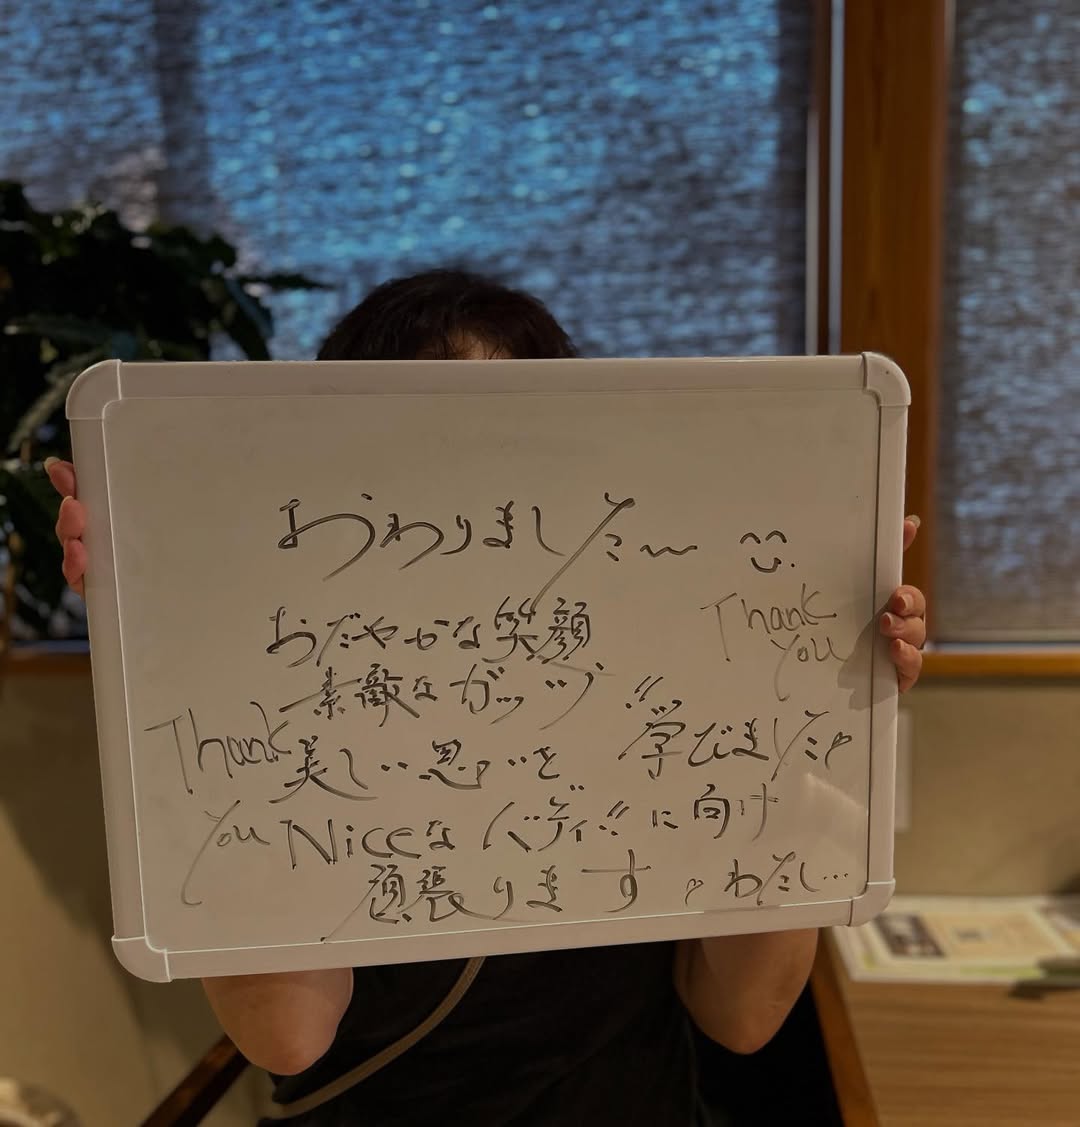 おわりました〜
おだやかな笑顔
Thank
You
素敵なガッツ!!
Thank
You
美しい思いを 学びました。
Niceなバディ!!に向け
頑張ります。わたし…